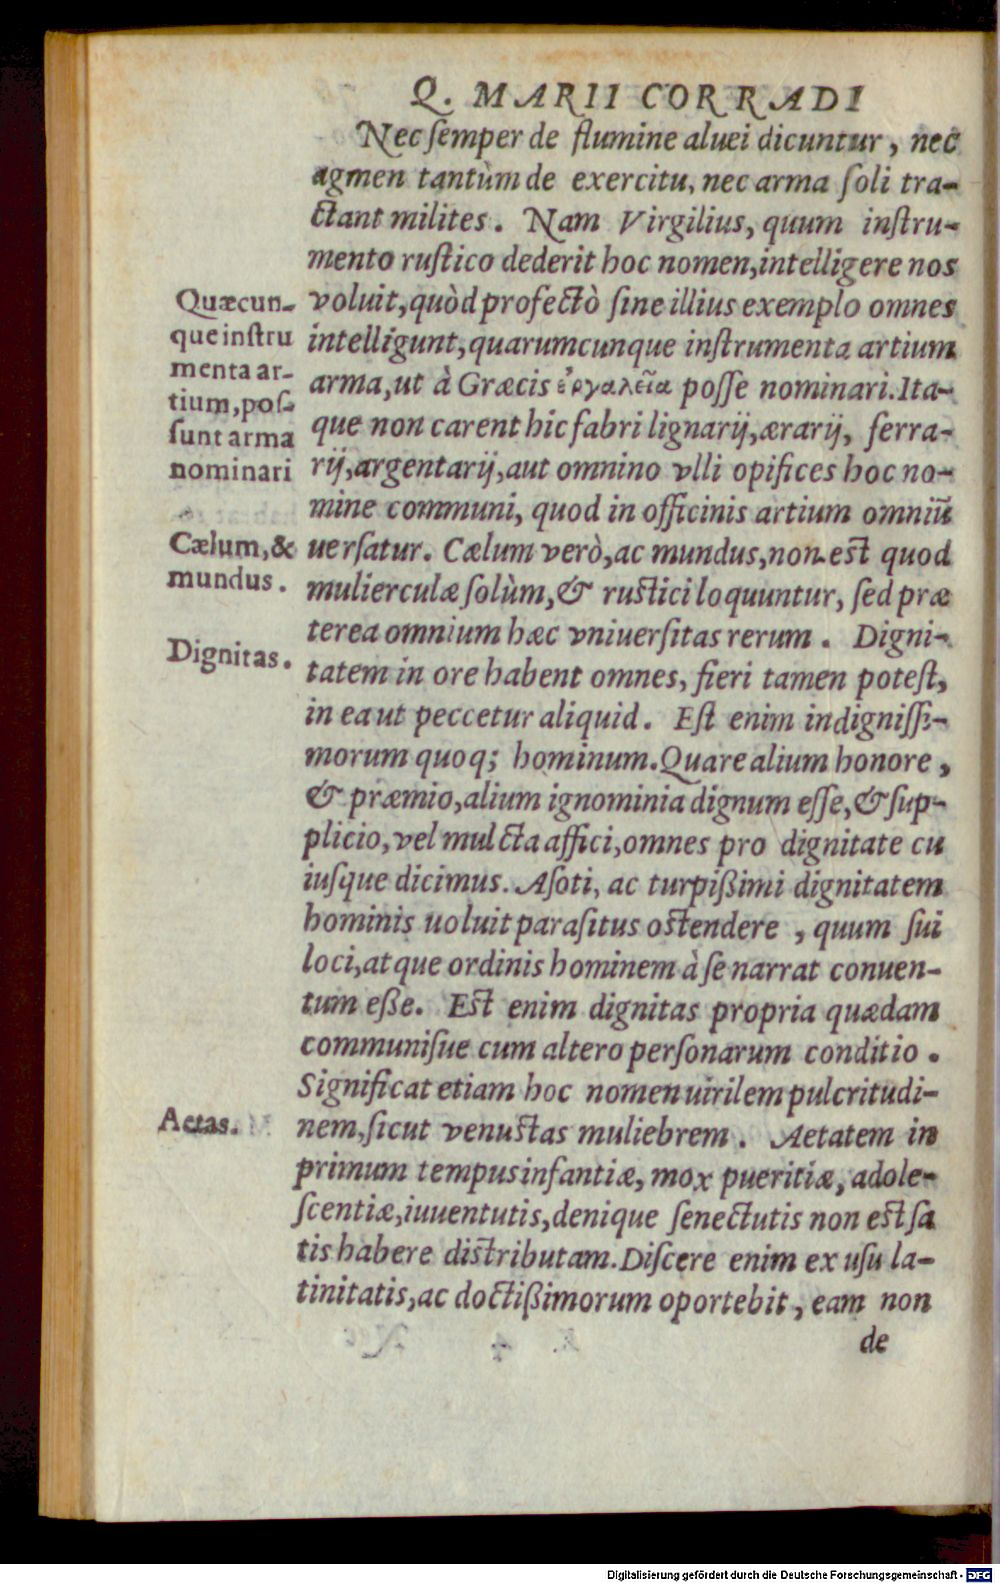 Q. MARII CORRADI
Nec semper de flumine aluei dicuntur, nec
agmen tantùm de exercitu, nec arma soli tra-
ctant milites. Nam Virgilius, quum instru-
mento rustico dederit hoc nomen, intelligere nos
voluit, quòd profectò sine illius exemplo omnes
intelligunt, quarumcunque instrumenta artium
arma, ut à Græcis ἐργαλεῖα posse nominari. Ita-
que non carent hic fabri lignarij, ærarij, ferra-
rij, argentarij, aut omnino vlli opifices hoc no-
mine communi, quod in officinis artium omniū
uersatur. Cælum verò, ac mundus, non est quod
mulierculæ solùm, & rustici loquuntur, sed præ
terea omnium hæc vniuersitas rerum. Digni-
tatem in ore habent omnes, fieri tamen potest,
in ea ut peccetur aliquid. Est enim indignissi-
morum quoq; hominum. Quare alium honore,
& præmio, alium ignominia dignum esse, & sup-
plicio, vel mulcta affici, omnes pro dignitate cu
iusque dicimus. Asoti, ac turpißimi dignitatem
hominis uoluit parasitus ostendere, quum sui
loci, atque ordinis hominem à se narrat conuen-
tum eße. Est enim dignitas propria quædam
communisue cum altero personarum conditio.
Significat etiam hoc nomen uirilem pulcritudi-
nem, sicut venustas muliebrem. Aetatem in
primum tempus infantiæ, mox pueritiæ, adole-
scentiæ, iuuentutis, denique senectutis non est sa
tis habere distributam. Discere enim ex usu la-
tinitatis, ac doctißimorum oportebit, eam non
de
Quæcun-
que instru
menta ar-
tium, pos-
sunt arma
nominari
Cælum, &
mundus.
Dignitas.
Aetas.
Digitalisierung gefördert durch die Deutsche Forschungsgemeinschaft - DFG